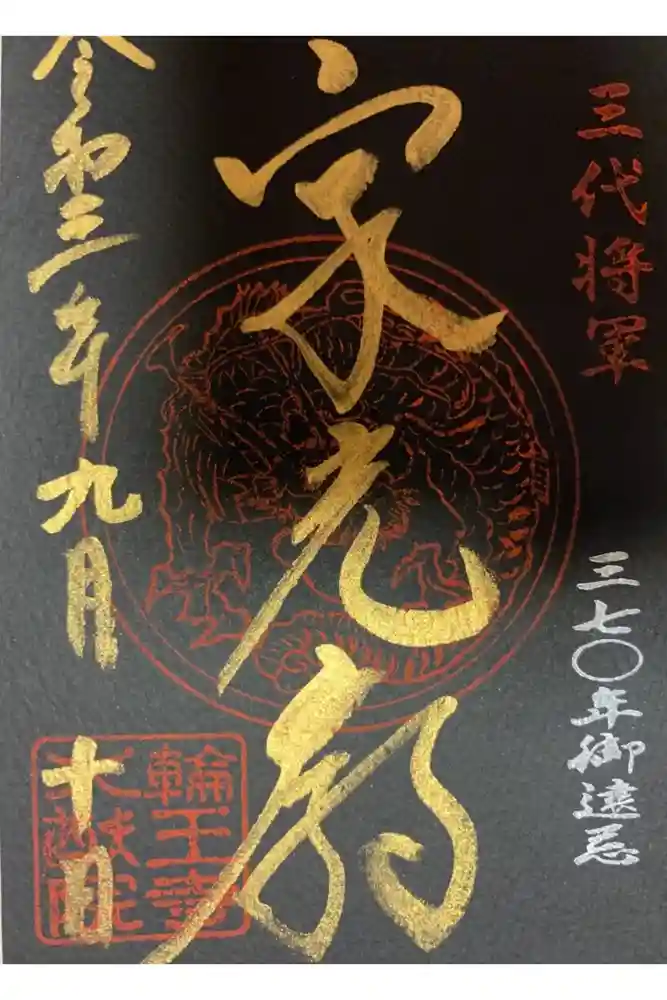 三代将軍
三七〇年御遠忌
家光廟
令和三年九月十日
輪王寺
大猷院